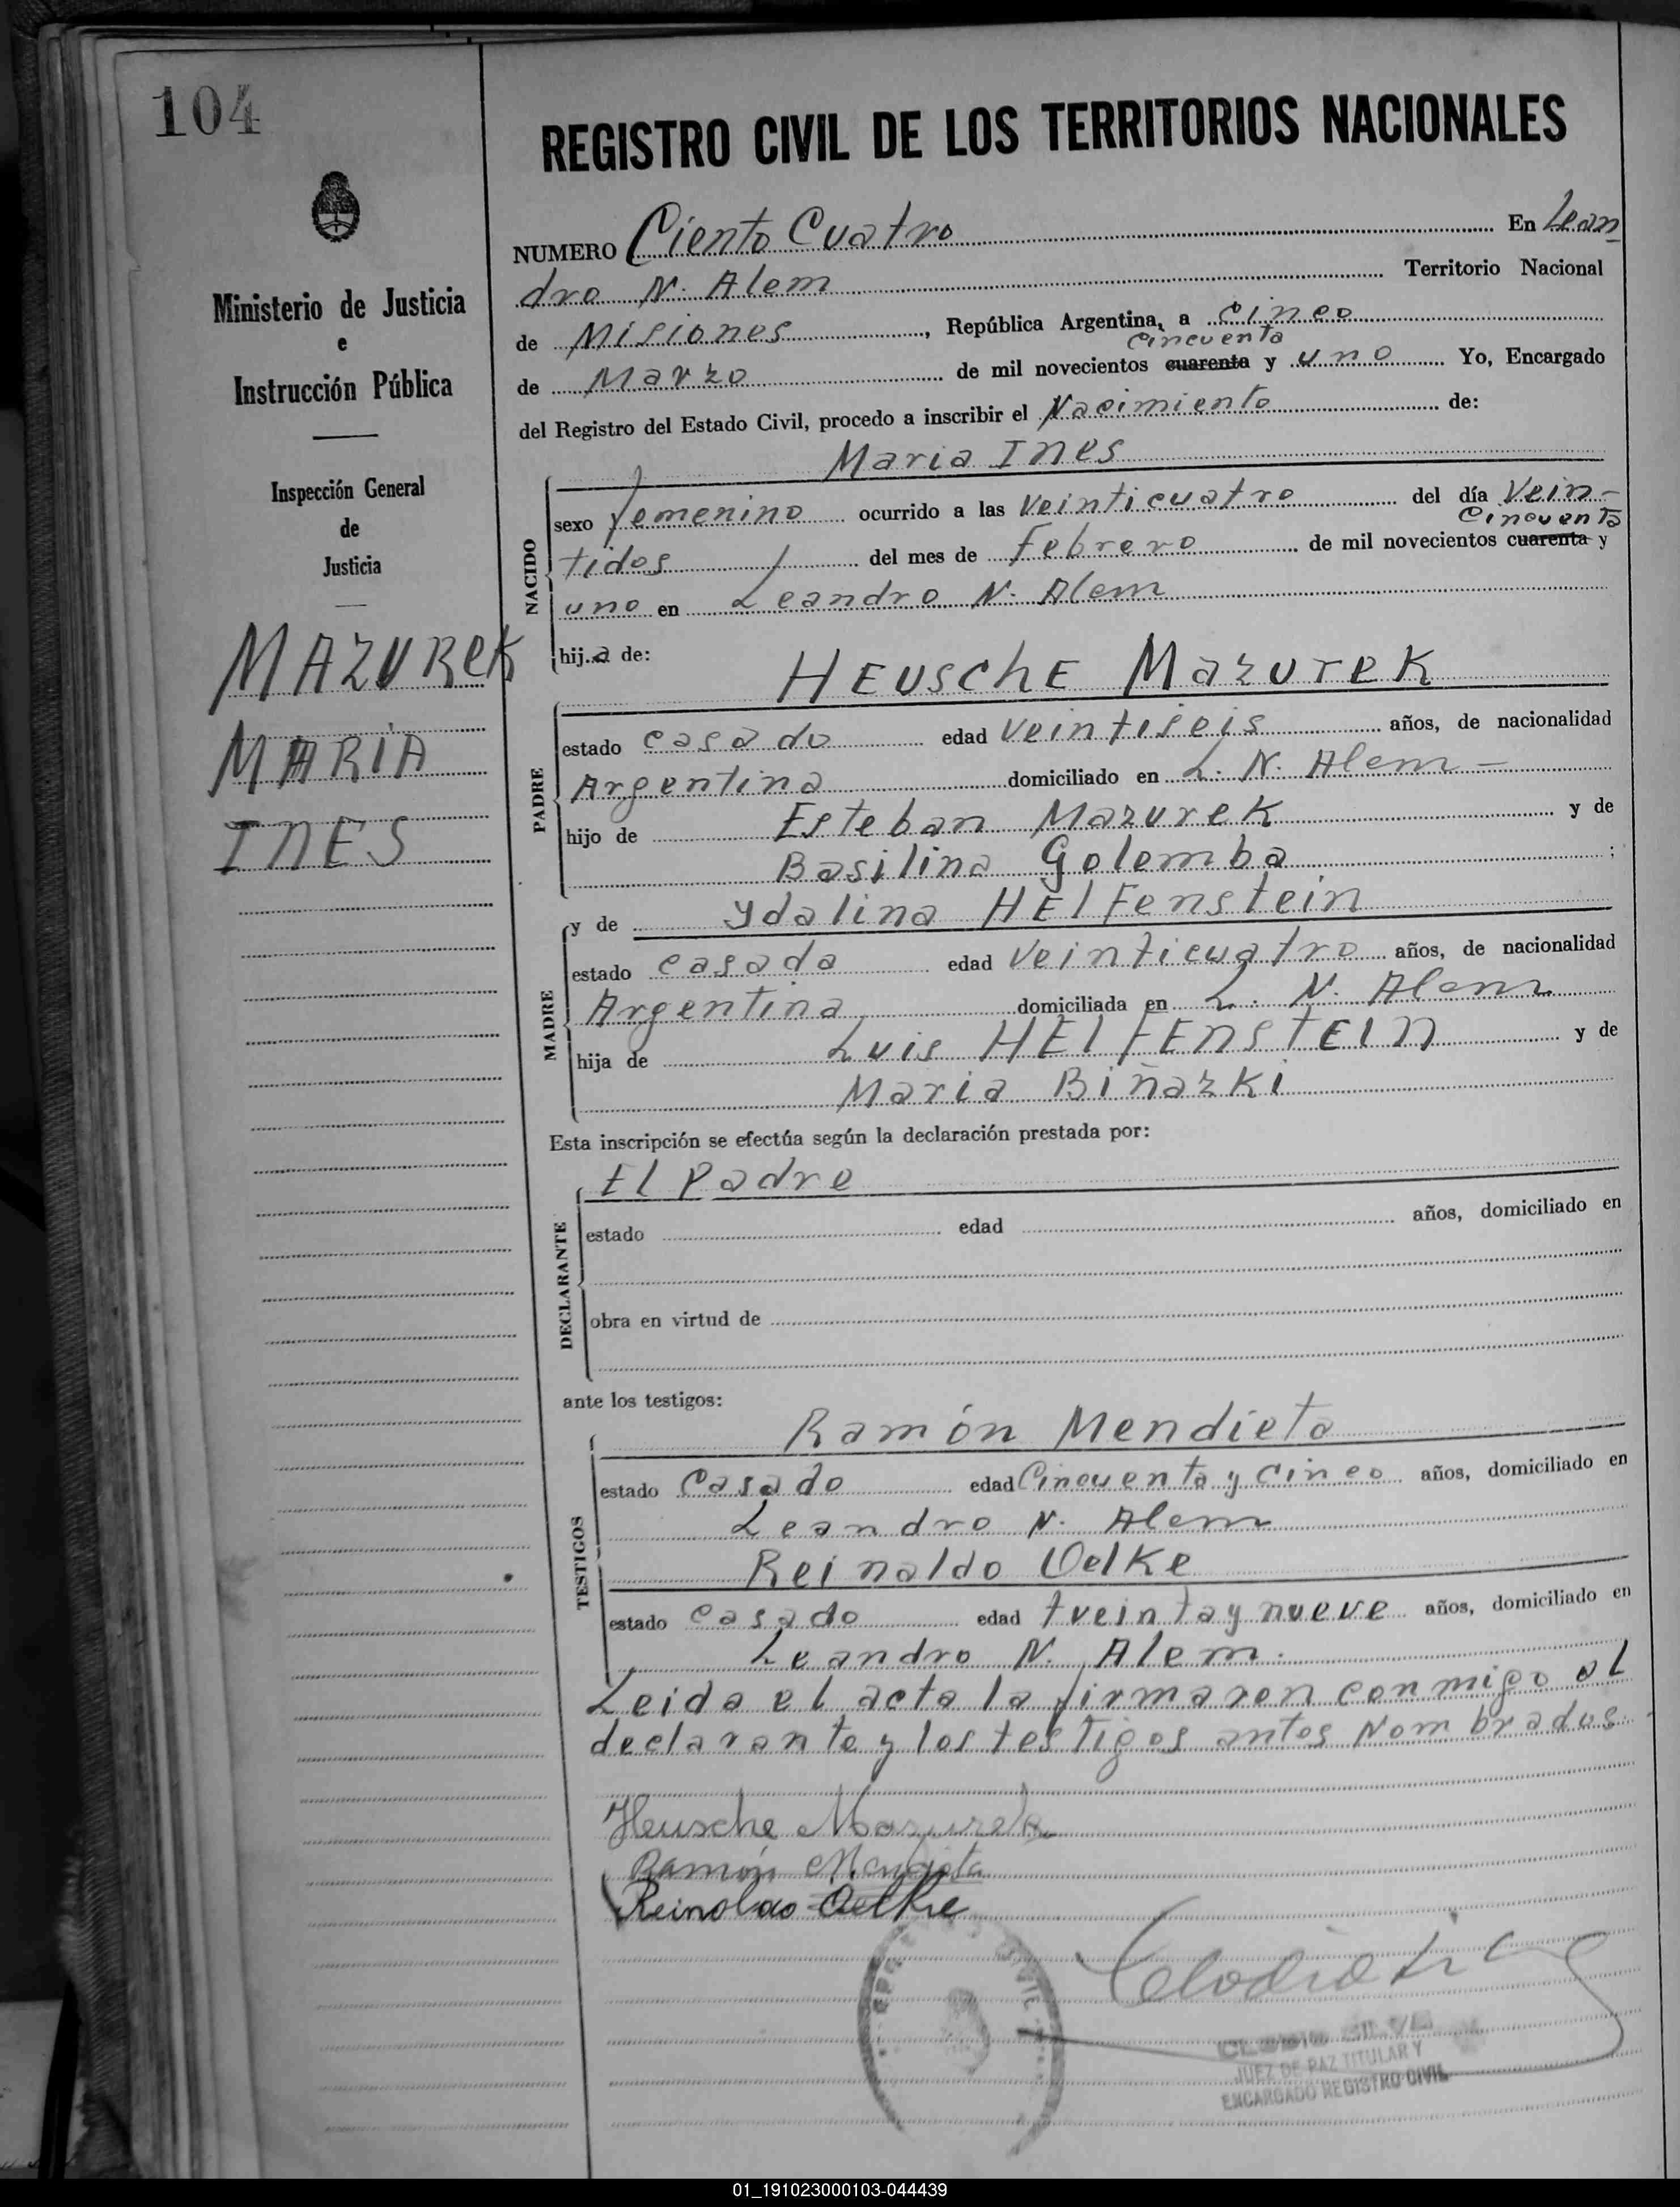 104
Ministerio de Justicia
e
Instrucción Pública
Inspección General
de
Justicia
MAZUREK
MARIA
INES
REGISTRO CIVIL DE LOS TERRITORIOS NACIONALES
NUMERO Ciento Cuatro En Lean
dro N. Alem Territorio Nacional
de Misiones, República Argentina, a cinco
cincuenta
de Marzo de mil novecientos cuarenta y uno Yo, Encargado
del Registro del Estado Civil, procedo a inscribir el Nacimiento de:
Maria Ines
NACIDO
sexo femenino ocurrido a las veinticuatro del día Vein-
cincuenta
tidos del mes de Febrero de mil novecientos cuarenta y
uno en Leandro N. Alem
hija de:
HEUSCHE Mazurek
PADRE
estado casado edad Veintiseis años, de nacionalidad
Argentina domiciliado en L. N. Alem -
hijo de Esteban Mazurek y de
Basilina Golemba ;
MADRE
y de Ydalina HElFenstein
estado casada edad Veinticuatro años, de nacionalidad
Argentina domiciliada en L. N. Alem
hija de Luis HElFENSTEIN y de
Maria Biñazki
Esta inscripción se efectúa según la declaración prestada por:
El Padre
DECLARANTE
estado edad años, domiciliado en
obra en virtud de
ante los testigos:
TESTIGOS
Ramón Mendieta
estado Casado edad Cincuenta y Cinco años, domiciliado en
Leandro N. Alem
Reinaldo Oelke
estado casado edad treinta y nueve años, domiciliado en
Leandro N. Alem.
Leida el acta la firmaron conmigo el
declarante y los testigos antes Nombrados
Heusche Mazurek
Ramón Mendieta
Reinoldo Oelke
JUEZ DE PAZ TITULAR Y
ENCARGADO REGISTRO CIVIL
01_191023000103-044439